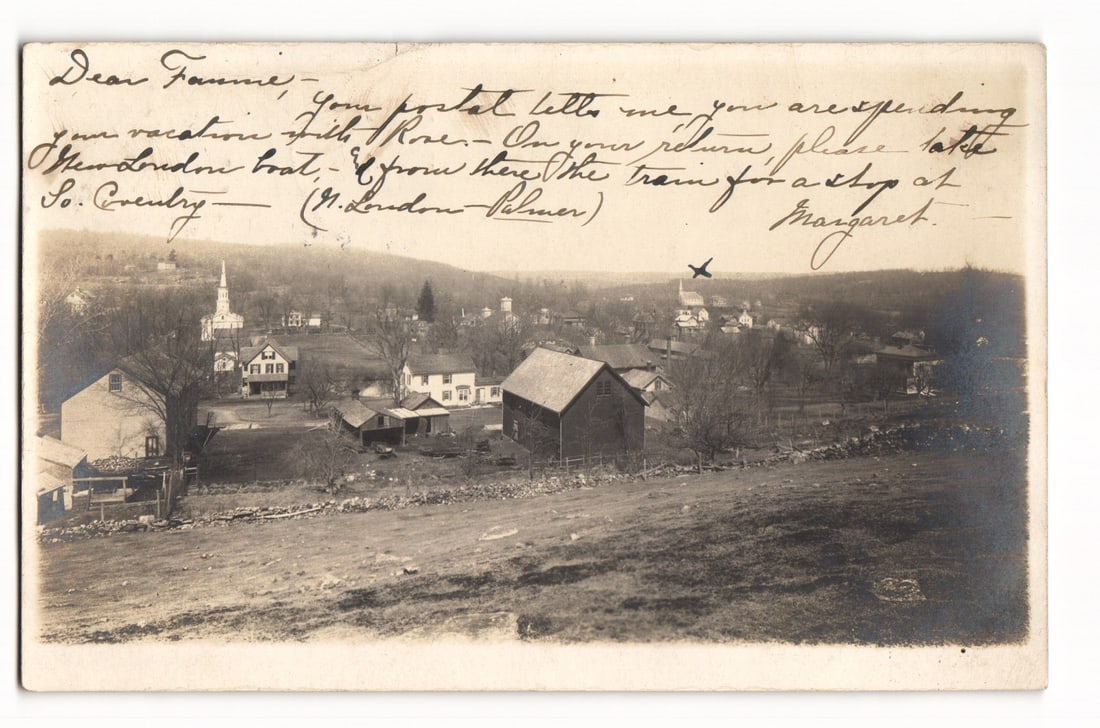 Dear Fannie, –
your postal tells me, you are spending
your vacation with Rose. – On your return, please take
New London boat, – & from there the train for a stop at
So. Coventry — (N. London – Palmer)
Margaret. —